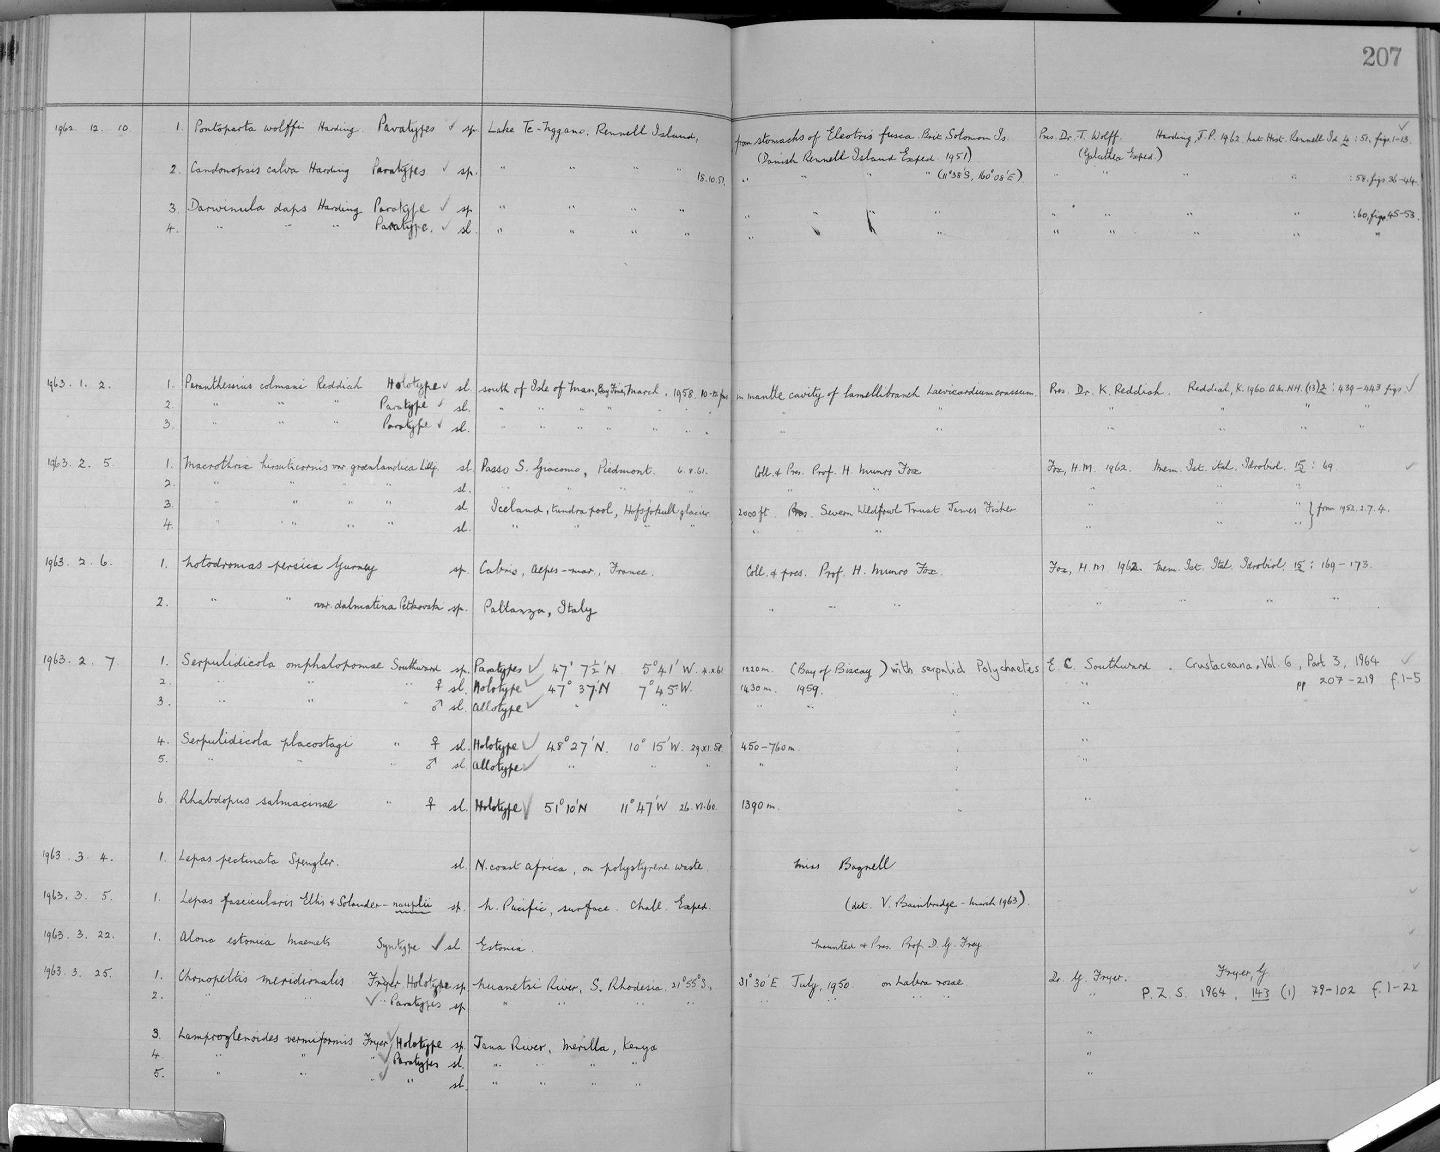 207
1962. 12. 10 1. Pontoparta wolffi Harding. Paratypes ✓ sp. Lake Te-Nggano, Rennell Island, from stomachs of Eleotris fusca. Brit. Solomon Is. Pres. Dr. T. Wolff. Harding, J.P. 1962. Nat. Hist. Rennell Isl. 4 : 51, figs 1-13. ✓
(Danish Rennell Island Exped. 1951) (Galathea Exped.)
2. Candonopsis calva Harding Paratypes ✓ sp. " " " " 18.10.51. " " " " (11°38'S, 160°08'E) " " " " : 58, figs 36-44.
3. Darwinula daps Harding Paratype ✓ sp " " " " " " " " " " " : 60, figs 45-53.
4. " " " Paratype. ✓ sl. " " " " " " " " " " " "
1963. 1. 2. 1. Paranthessius colmani Reddiah Holotype ✓ sl. south of Isle of Man, Bay Fine, March, 1958. in mantle cavity of lamellibranch Laevicardium crassum. Pres. Dr. K. Reddiah. Reddiah, K. 1960 A.M.N.H. (13) 2 : 439-443 figs ✓
2. " " " Paratype ✓ sl. " " " " " " " " " "
3. " " " Paratype ✓ sl. " " " " " " " " " "
1963. 2. 5. 1. Macrothrix hirsuticornis var. groenlandica Lillj. sl. Passo S. Giacomo, Piedmont. 6.8.61. Coll. & Pres. Prof. H. Munro Fox Fox, H.M. 1962. Mem. Ist. ital. Idrobiol. 15 : 69 ✓
2. " " " sl. " " " " " " "
3. " " " sl Iceland, tundra pool, Hofsjokull glacier 2000 ft. Pres. Severn Wildfowl Trust James Fisher " " " } from 1952.2.7.4.
4. " " " sl. " " " " " " " "
1963. 2. 6. 1. Notodromas persica Gurney sp. Cabris, Alpes-mar., France. Coll. & pres. Prof. H. Munro Fox. Fox, H.M. 1962. Mem. Ist. Ital. Idrobiol. 15 : 169-173.
2. " " var. dalmatina Petkovski sp. Pallanza, Italy " " " " " " "
1963. 2. 7 1. Serpulidicola omphalopomae Southward sp. Paratypes ✓ 47° 7½'N 5°41'W. 4.x.61 1220 m. (Bay of Biscay) with serpulid Polychaetes E. C. Southward. Crustaceana, Vol. 6, Part 3, 1964 ✓
pp 207-219 f. 1-5
2. " " " ♀ sl. Holotype ✓ 47° 37'N 7° 45'W. 1430 m. 1959. " "
3. " " " ♂ sl. Allotype ✓ " " " " " "
4. Serpulidicola placostegi " ♀ sl. Holotype ✓ 48° 27'N. 10° 15'W. 29.xi.58. 450-760 m. " "
5. " " " ♂ sl. Allotype ✓ " " " " " "
6. Rhabdopus salmacinae " ♀ sl. Holotype ✓ 51°10'N 11°47'W 26.vi.60. 1390 m. " "
1963. 3. 4. 1. Lepas pectinata Spengler. sl. N. coast Africa, on polystyrene waste. Miss Bagnell
1963. 3. 5. 1. Lepas fascicularis Ellis & Solander - nauplii sp. N. Pacific, surface. Chall. Exped. (det. V. Bainbridge - March 1963)
1963. 3. 22. 1. Alona estonica Maemets Syntype ✓ sl Estonia. Mounted & Pres. Prof. D. G. Frey
1963. 3. 25. 1. Chonopeltis meridionalis Fryer Holotype sp. Nuanetsi River, S. Rhodesia, 21°55'S, 31°30'E July, 1950. on Labeo rosae. Dr. G. Fryer. Fryer, G. ✓
P. Z. S. 1964, 143 (1) 79-102 f. 1-22
2. " " ✓ " Paratypes sp " " " " " " " "
3. Lamproglenoides vermiformis Fryer Holotype sp. Tana River, Merilla, Kenya "
4. " " " Paratypes sl. " " " " "
5. " " " " sl. " " " " "